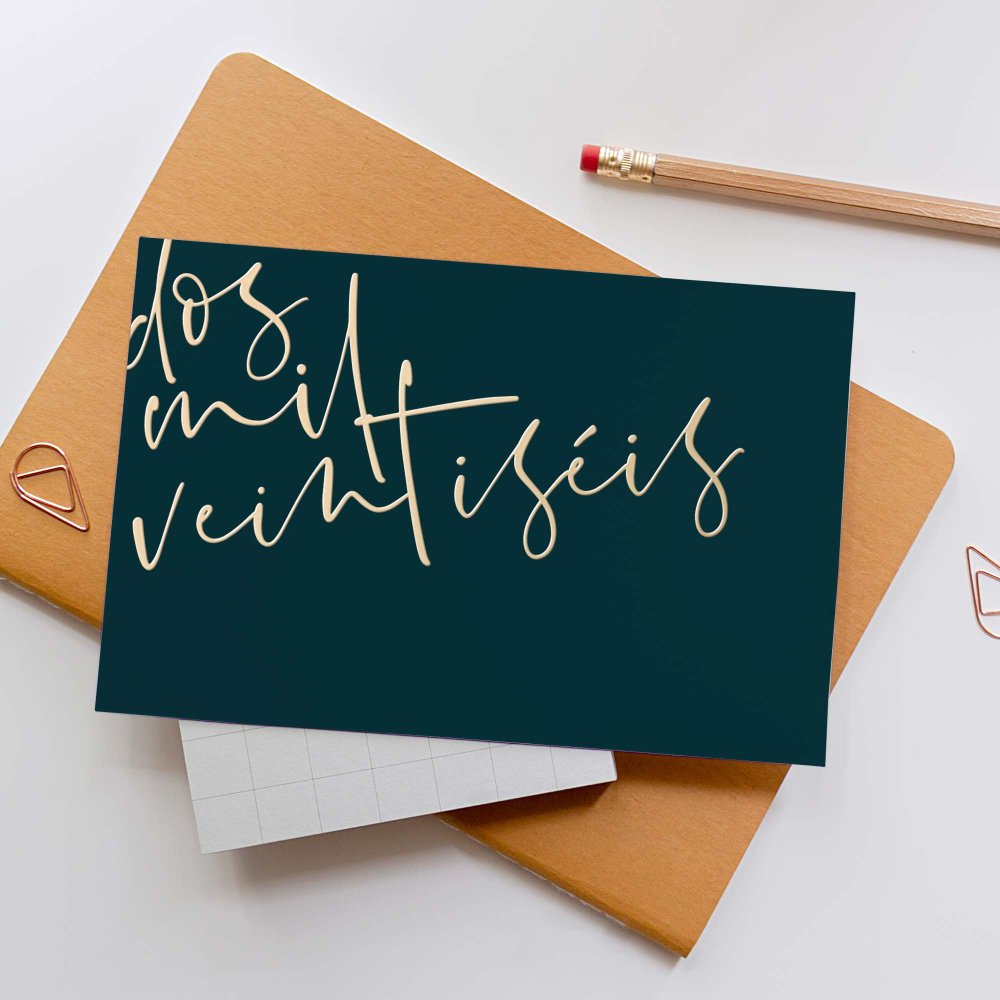 dos
mil
veintiséis